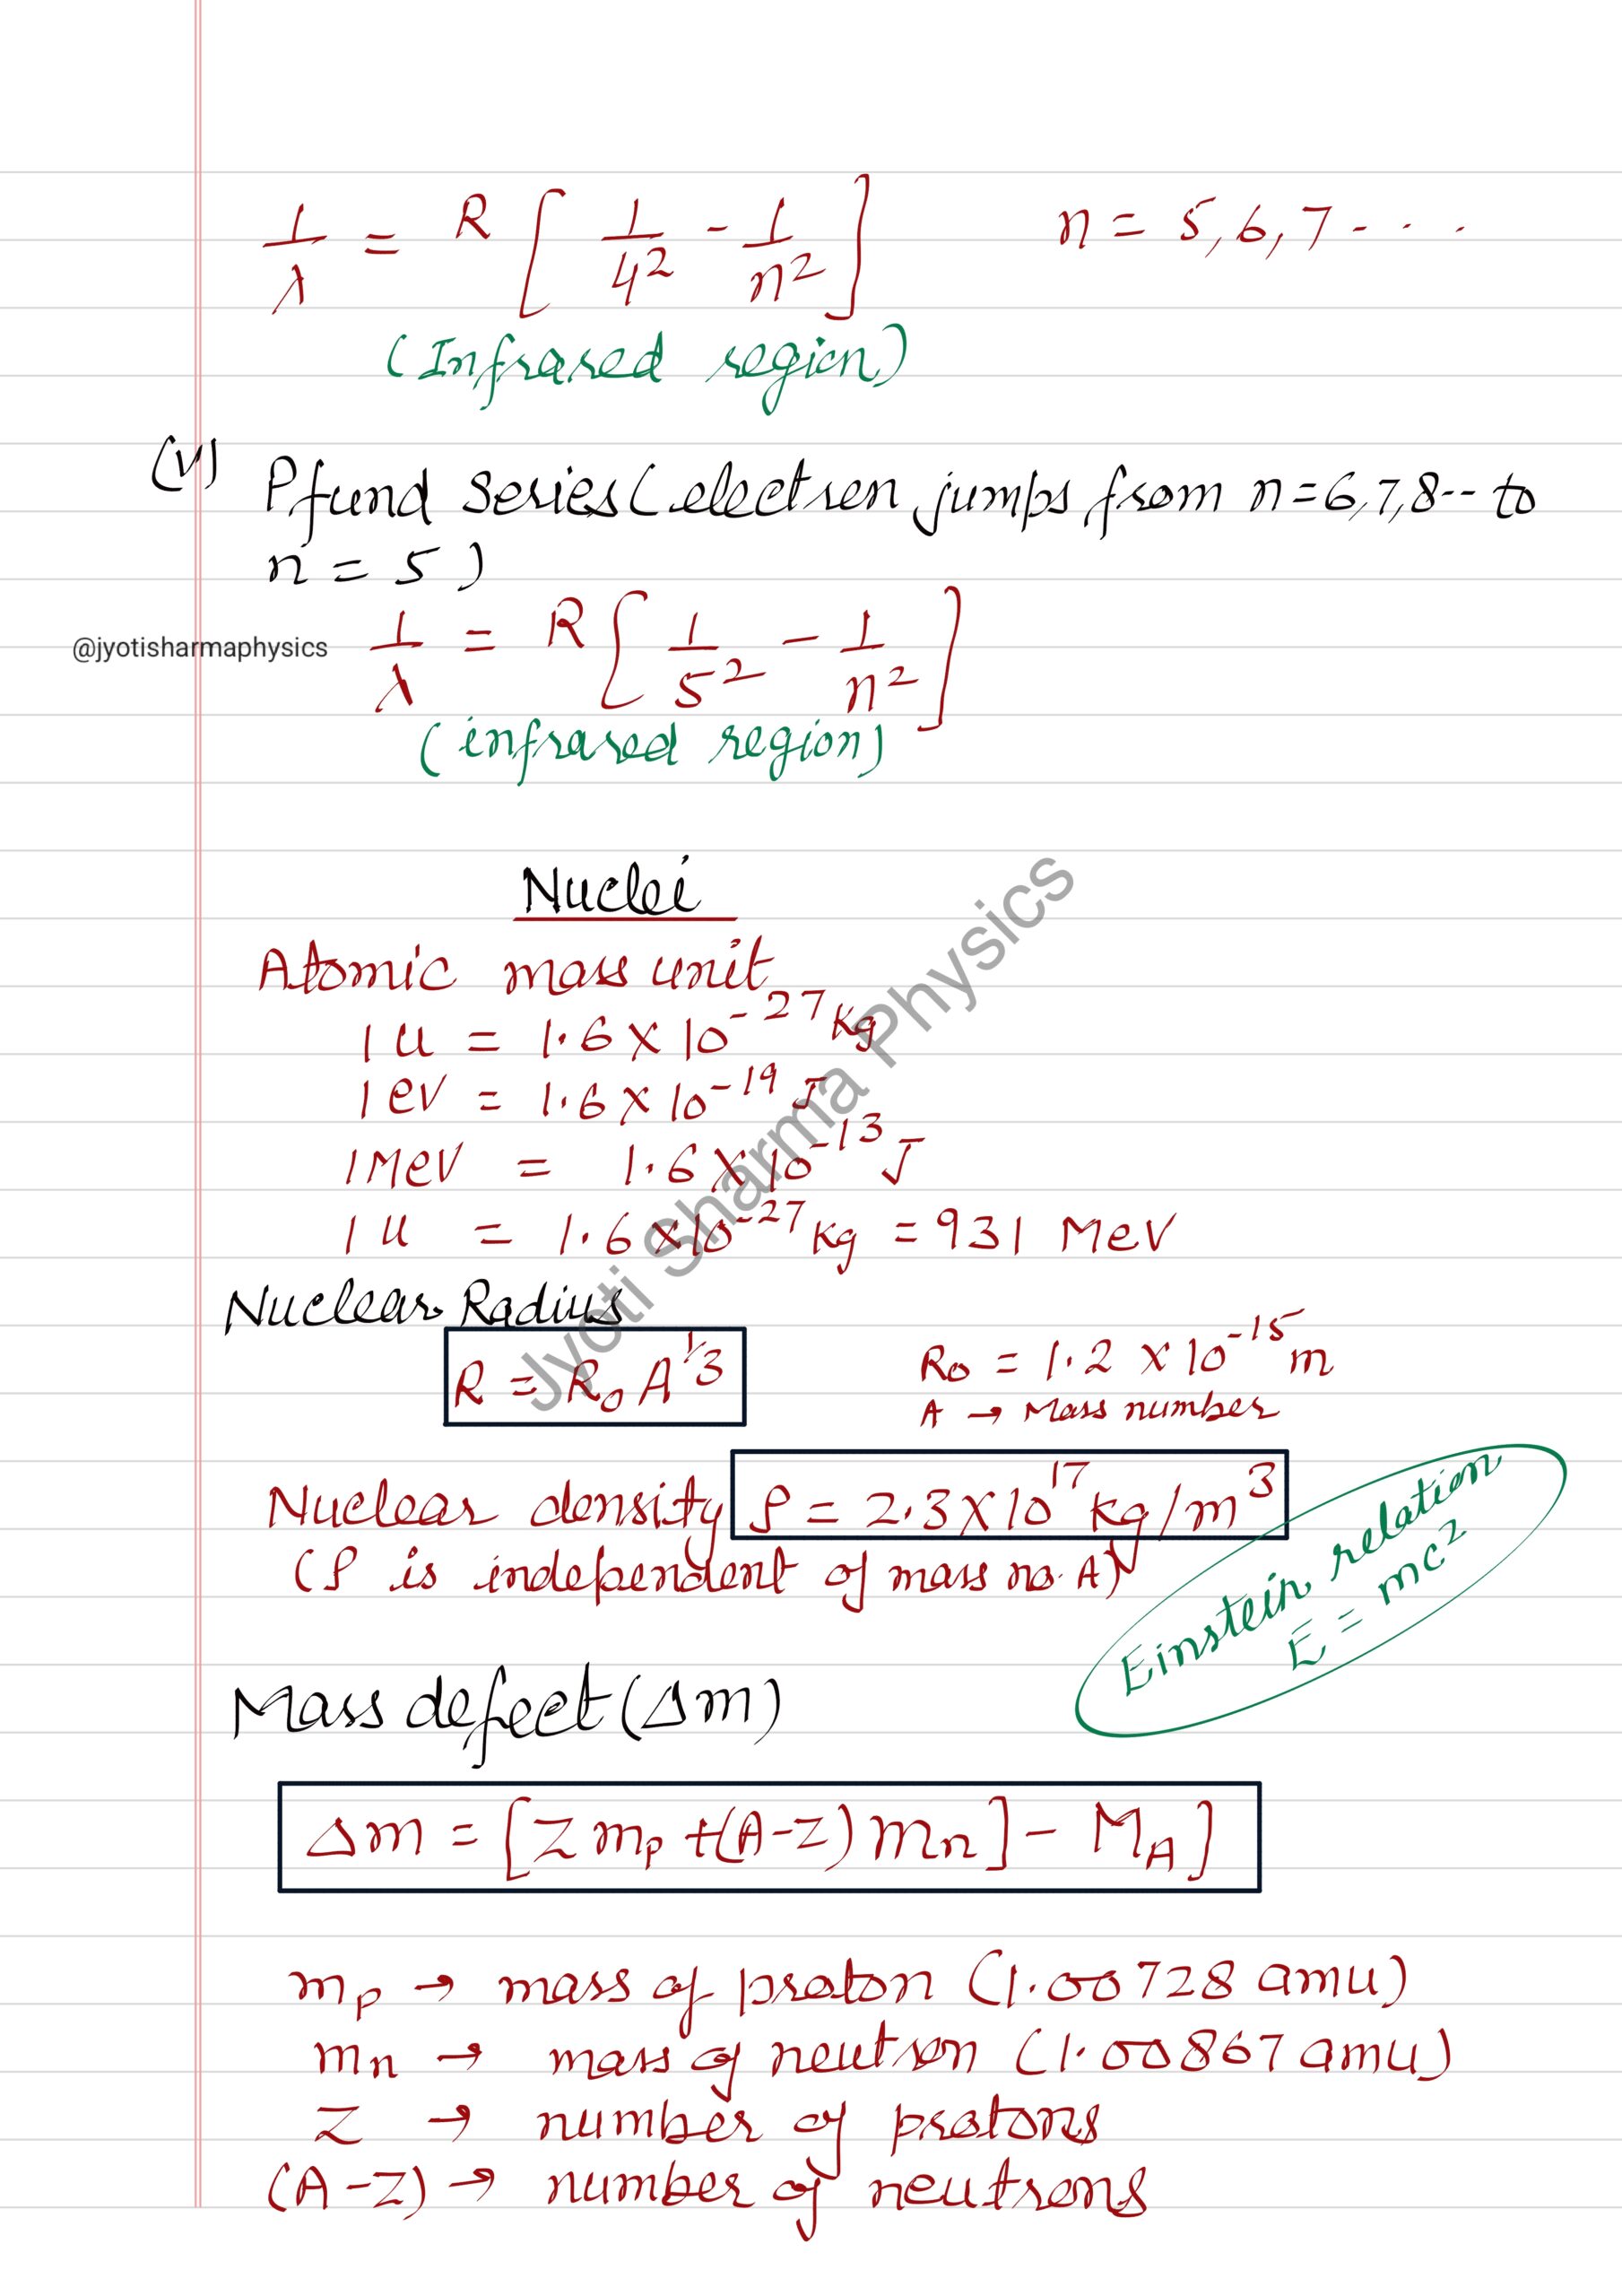 1/λ = R [ 1/4² - 1/n² ] n = 5, 6, 7 - - - -
(Infrared region)
(V) Pfund Series (electron jumps from n=6,7,8-- to
n = 5 )
@jyotisharmaphysics 1/λ = R [ 1/5² - 1/n² ]
(infrared region)
Nuclei
Atomic mass unit
1 u = 1.6 x 10⁻²⁷ Kg
1 ev = 1.6 x 10⁻¹⁹ J
1 Mev = 1.6 x 10⁻¹³ J
1 u = 1.6 x 10⁻²⁷ kg = 931 MeV
Nuclear Radius
R = R₀ A^1/3 R₀ = 1.2 x 10⁻¹⁵ m
A → Mass number
Nuclear density ρ = 2.3 x 10¹⁷ kg/m³
(ρ is independent of mass no. A)
Einstein relation
E = mc²
Mass defect (Δm)
Δm = [Z mₚ + (A-Z) mₙ] - M_A]
mₚ → mass of proton (1.00728 amu)
mₙ → mass of neutron (1.00867 amu)
Z → number of protons
(A-Z) → number of neutrons
Jyoti Sharma Physics